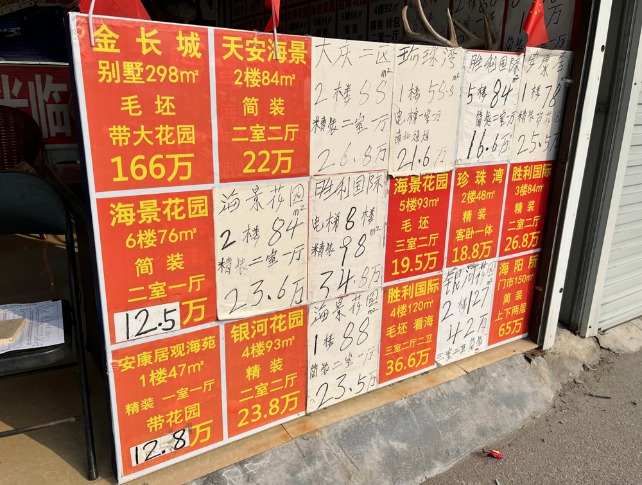 金长城
别墅298㎡
毛坯
带大花园
166万
天安海景
2楼84㎡
简装
二室二厅
22万
大庆二区
2楼88㎡
精装二室一厅
26.8万
珍珠湾
1楼58.8㎡
电梯二室一厅
21.6万
胜利国际
5楼84㎡
简装二室一厅
16.6万
1楼78㎡
25.5万
海景花园
6楼76㎡
简装
二室一厅
12.5万
海景花园
2楼84㎡
精装二室一厅
23.6万
胜利国际
电梯8楼
精装98㎡
34.8万
海景花园
5楼93㎡
毛坯
三室二厅
19.5万
珍珠湾
2楼48㎡
精装
客卧一体
18.8万
胜利国际
3楼84㎡
精装
二室二厅
26.8万
安康居观海苑
1楼47㎡
精装 一室一厅
带花园
12.8万
银河花园
4楼93㎡
精装
二室二厅
23.8万
海景花园
1楼88㎡
简装二室一厅
23.5万
胜利国际
4楼120㎡
毛坯 看海
三室二厅二卫
36.6万
银河花园
2楼127㎡
42万
三室二厅简装
海阳所
门市150㎡
简装
上下两层
65万